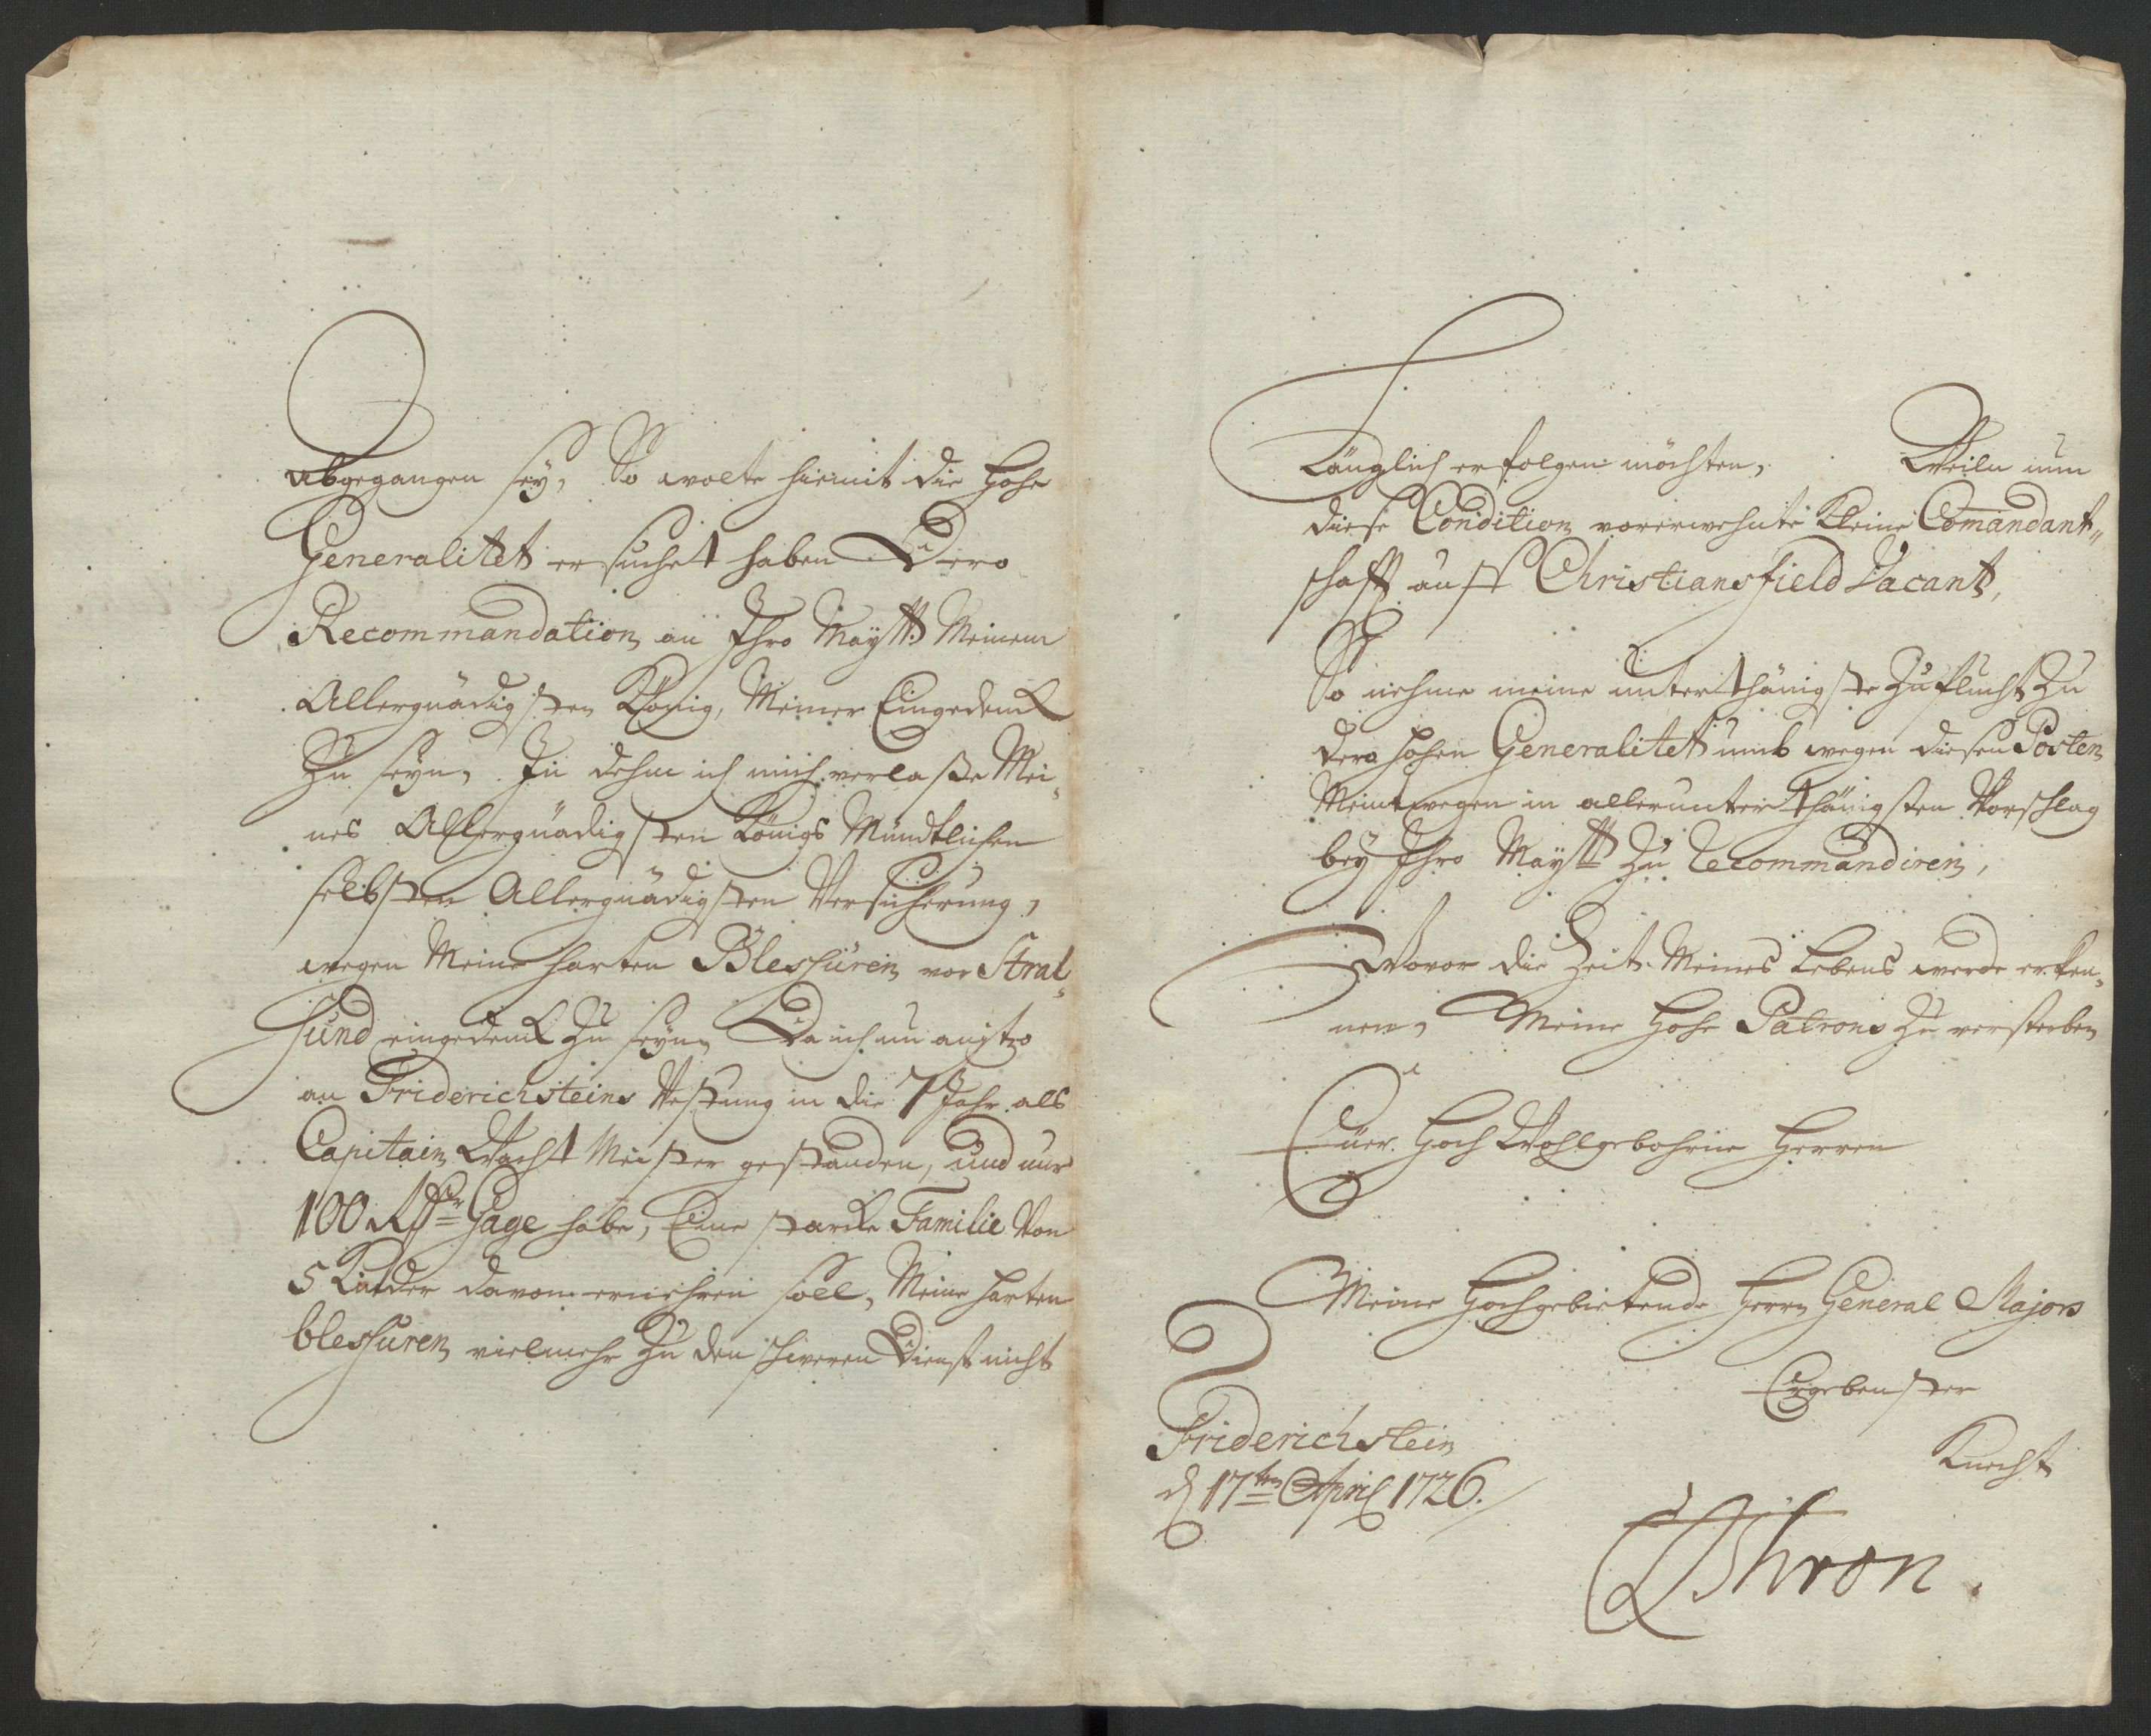 abgegangen sey, So wolte hiemit die Hohe
Generalitet ersuchet haben Dero
Recommandation an Ihro Maytt: Meinem
Allergnädigsten König, Meiner Eingedenck
Zu seyn, In dehm ich mich verlaße Mei„
nes Allergnädigsten Königs Mündtlichen
selbsten Allergnädigsten Versicherung,
wegen Meine harten Blessuren vor Stral„
sund eingedenck Zu seyn, Da ich nu anitzo
an Friderichsteins Vestung in die 7 Jahr als
Capitain Wacht Meister gestanden, und nur
100 Rdr Gage habe, Eine starcke Familie Von
5 Kinder davon ernehren soll, Meine harten
blessuren vielmehr Zu den schweren Dienst nicht
Länglich erfolgen möchten, Weiln nun
diese Condition vorerwehnte Kleine Comandant„
schafft auff Christiansfield Vacant,
So nehme meine unterthänigste Zuflucht Zu
dero hohen Generalitet umb wegen diesen Posten
Meintwegen in allerunterthänigsten Vorschlag
bey Ihro Maytt Zu Recommandiren,
Wovor die Zeit Meines Lebens werde erken„
nen, Meine Hohe Patrons Zu versterben
Eüer Hoch Wohlgebohrne Herren
Meine Hochgebietende Herrn General Majors
Ergebenster
Knecht
Friderichstein
d 17ten April 1726.